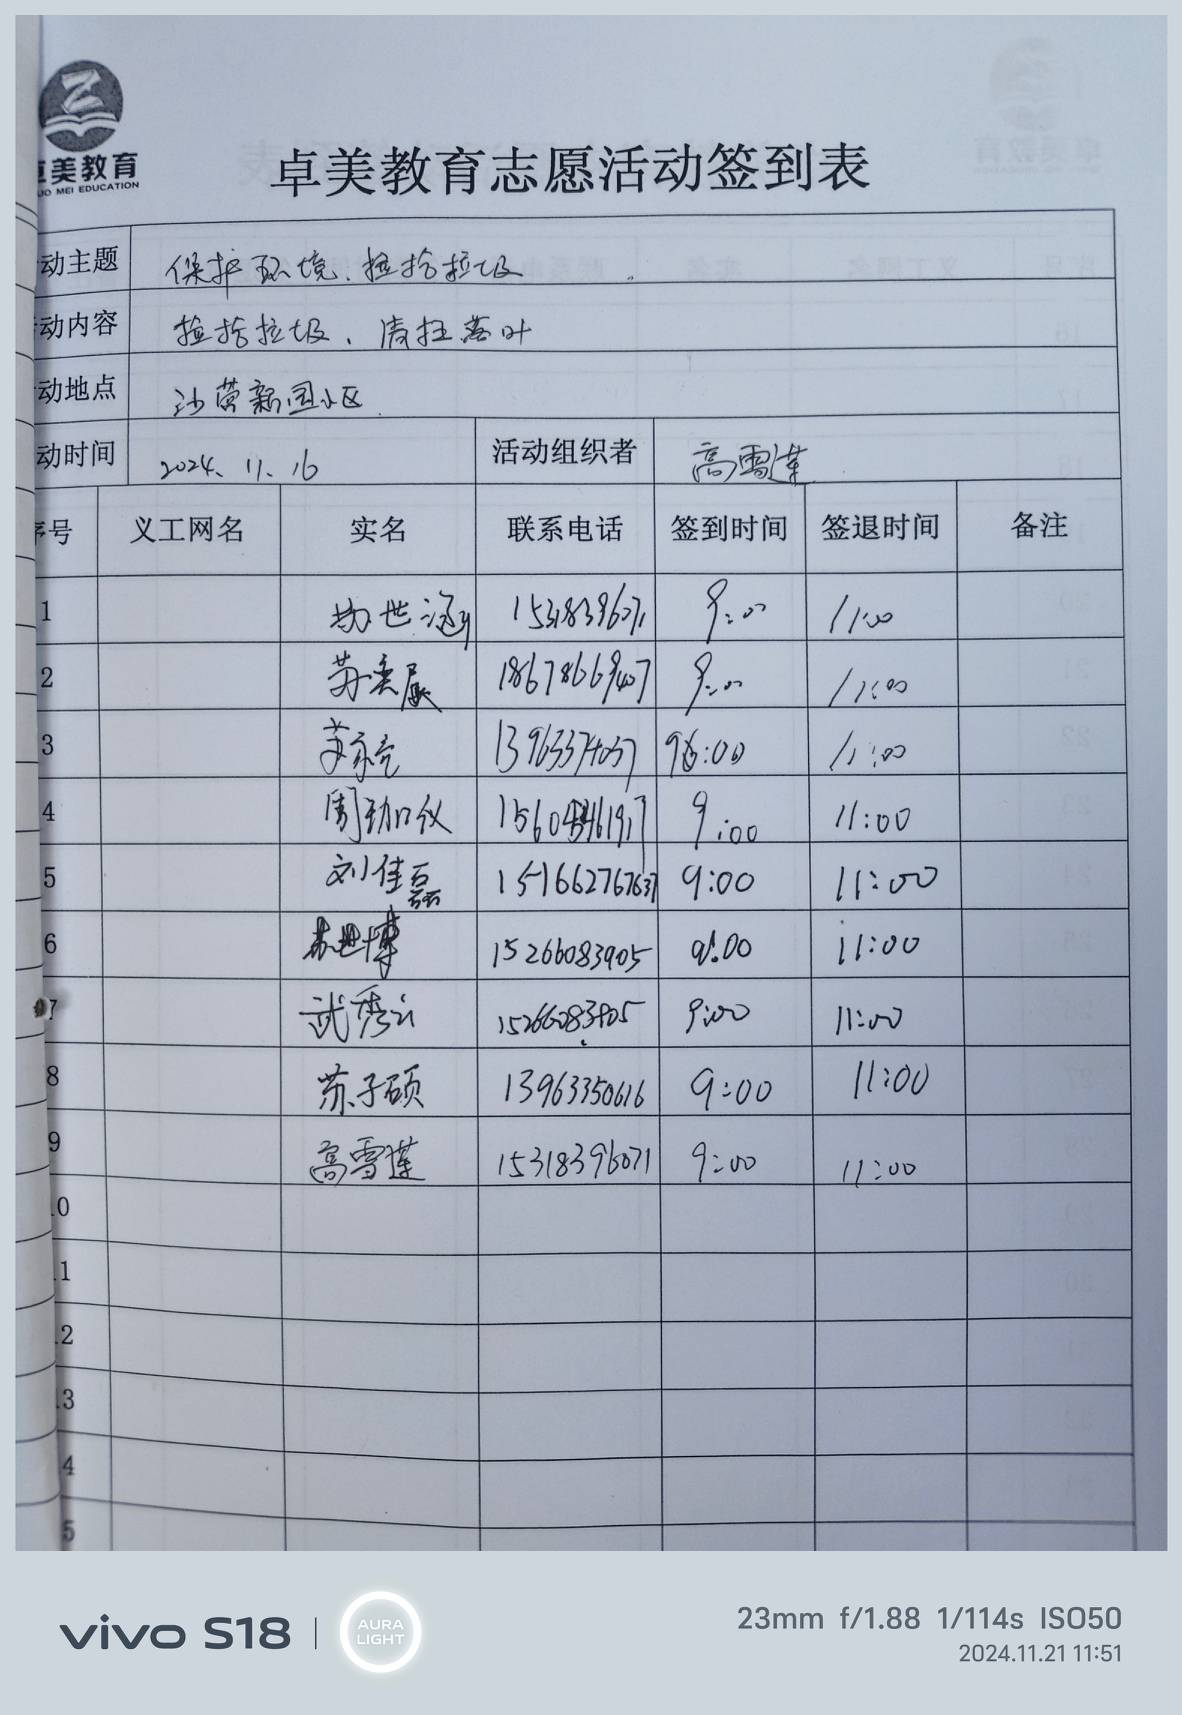 美教育
JO MEI EDUCATION
卓美教育志愿活动签到表
动主题 保护环境、捡拾垃圾
动内容 捡拾垃圾、清扫落叶
动地点 沙营新园小区
动时间 2024、11、16 活动组织者 高雪莲
序号 义工网名 实名 联系电话 签到时间 签退时间 备注
1 世涵 15318396071 9:00 11:00
2 苏奕展 18678669407 9:00 11:00
3 13963374037 9:00 11:00
4 周珈仪 9:00 11:00
5 刘佳磊 15166276737 9:00 11:00
6 世博 15266083905 9:00 11:00
7 武秀云 15266083905 9:00 11:00
8 苏子硕 13963350616 9:00 11:00
9 高雪莲 15318396071 9:00 11:00
10
11
12
13
4
5
vivo S18 | AURA LIGHT
23mm f/1.88 1/114s ISO50
2024.11.21 11:51